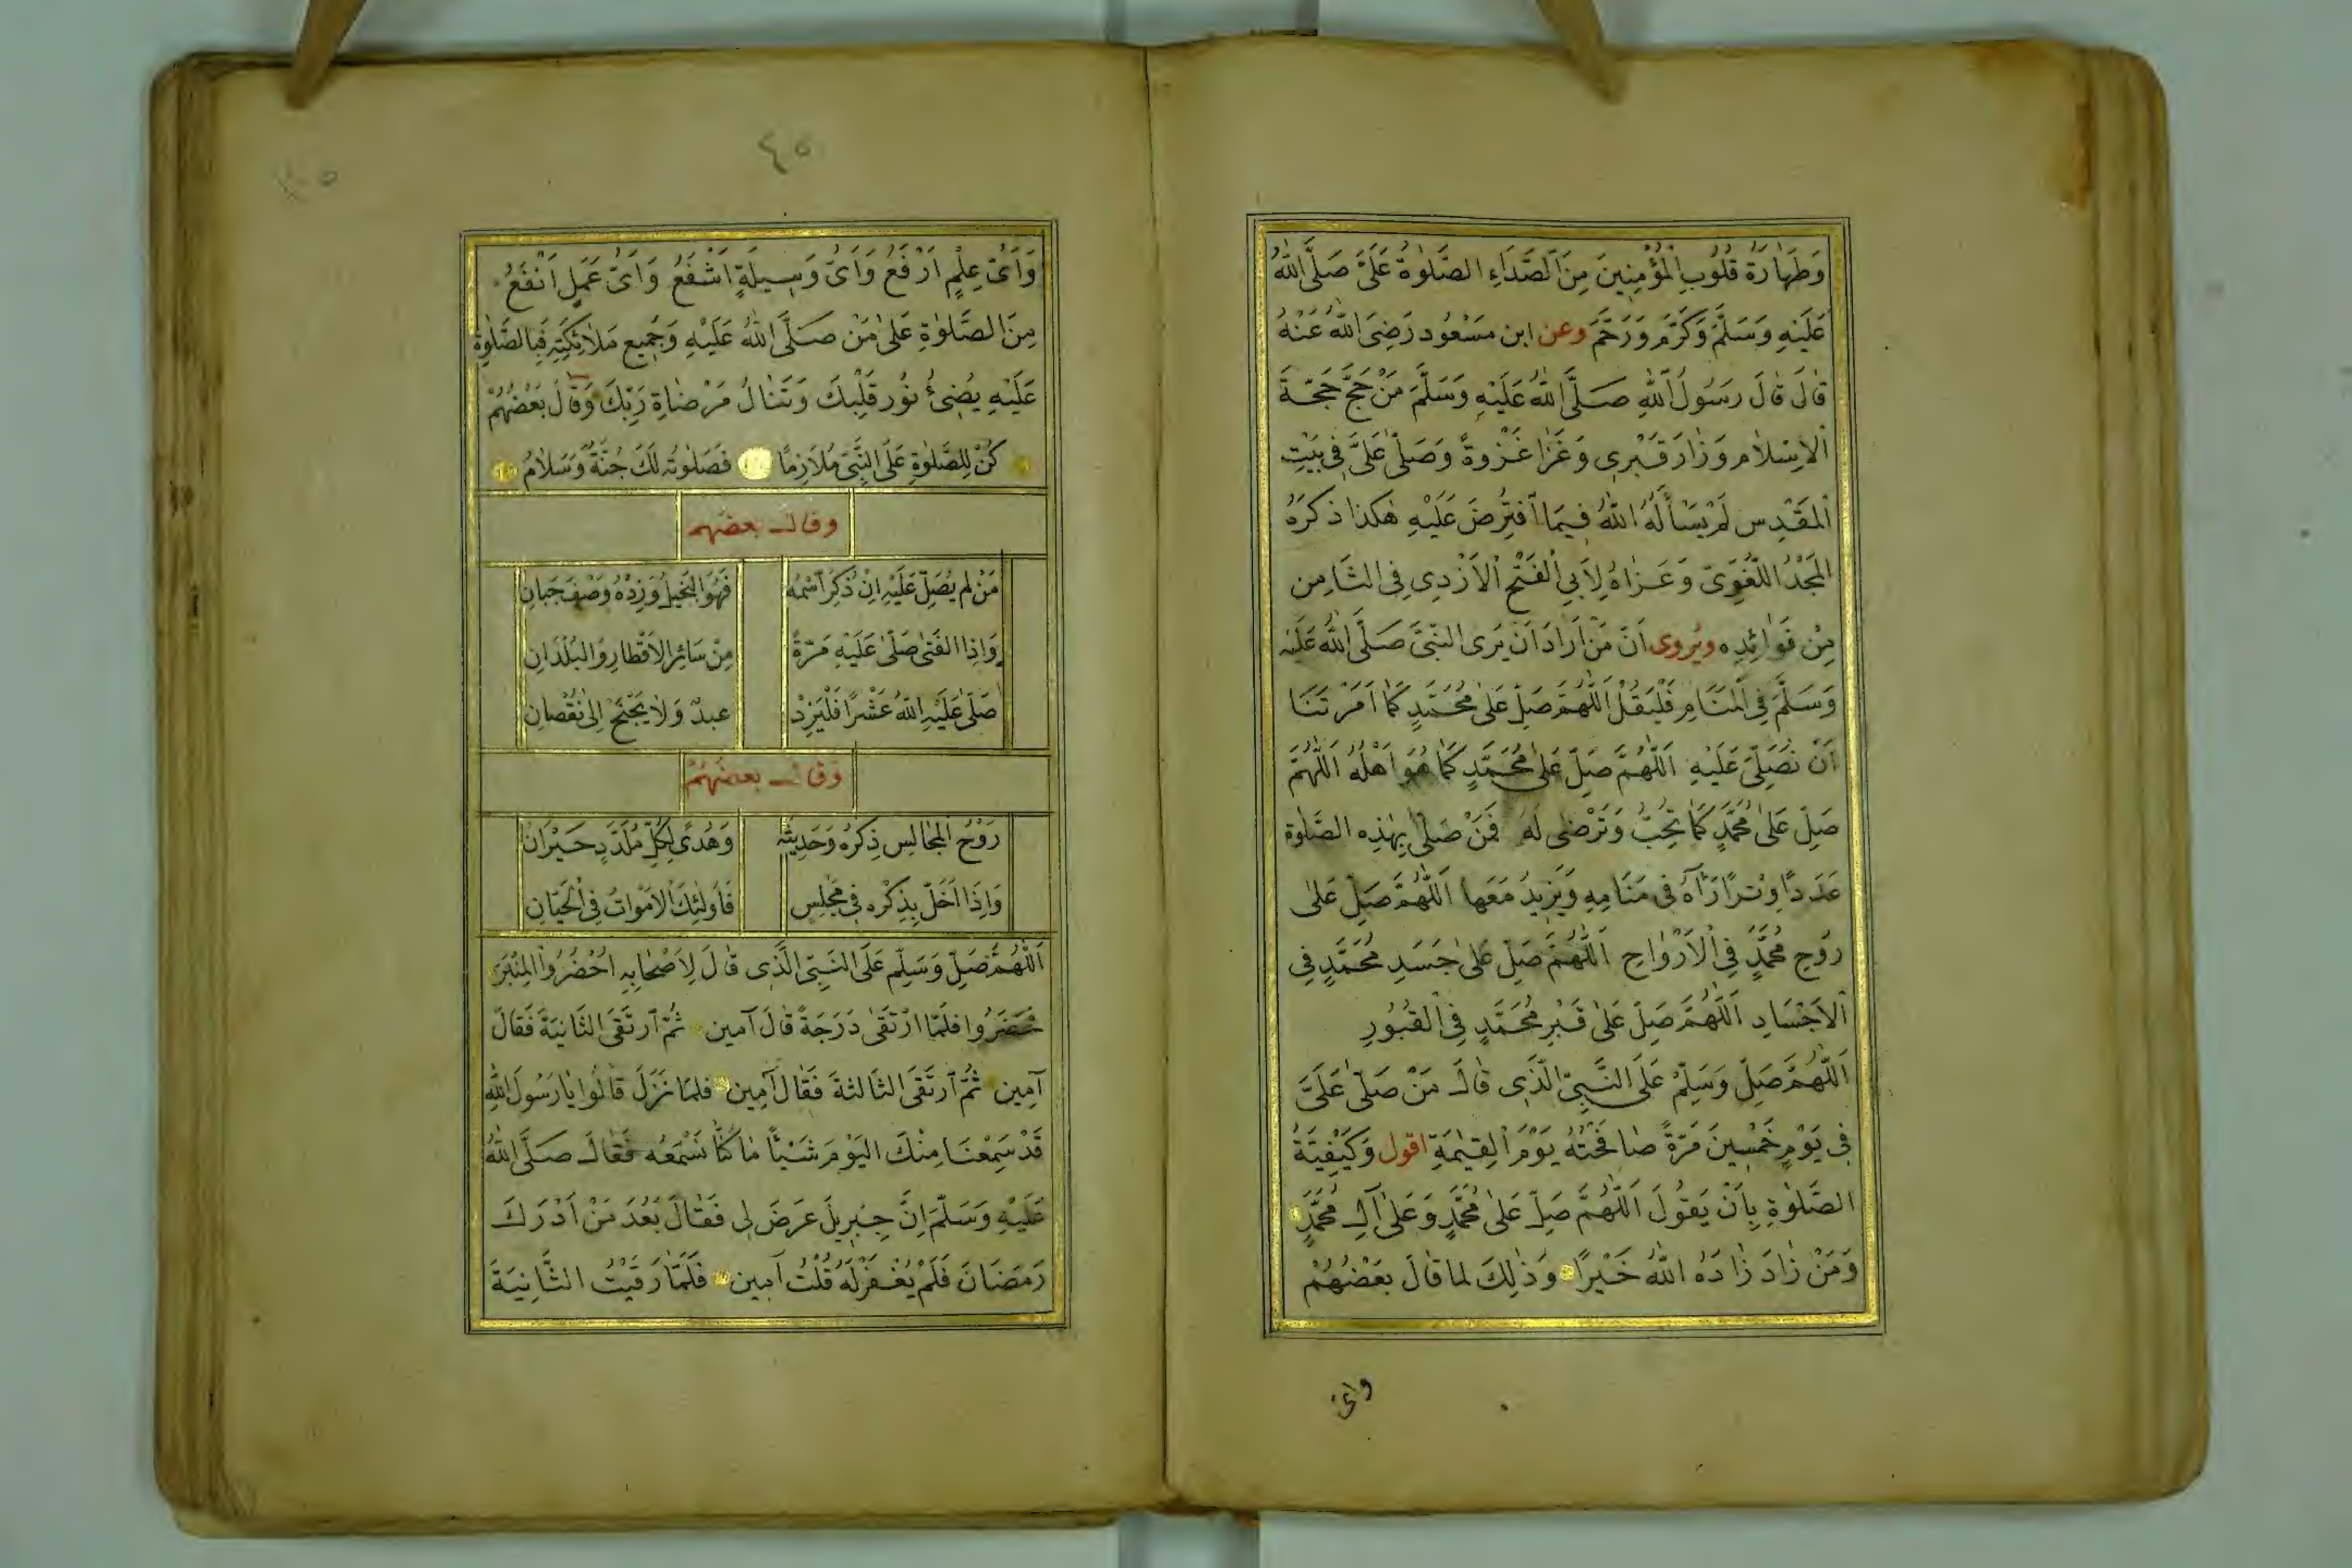 وَطَهَارَةُ قُلُوبِ الْمُؤْمِنِينَ مِنَ الصَّدَاءِ الصَّلٰوةُ عَلَىَّ صَلَّى اللّٰهُ
عَلَيْهِ وَسَلَّمَ وَكَرَّمَ وَرَحَّمَ وعن ابن مَسْعُود رَضِىَ اللّٰهُ عَنْهُ
قَالَ قَالَ رَسُولُ اللّٰهِ صَلَّى اللّٰهُ عَلَيْهِ وَسَلَّمَ مَنْ حَجَّ حَجَّةَ
الْاِسْلَام وَزَارَ قَبْرِى وَغَزَا غَزْوةً وَصَلَّى عَلَىَّ فِى بَيْتِ
الْمَقْدِس لَمْ يَسْأَلْهُ اللّٰهُ فِيمَا افْتَرَضَ عَلَيْهِ هٰكَذا ذَكَرَهُ
الْمَجْدُ اللُّغَوِىّ وَعَزَاهُ لِأَبِى الْفَتْحِ الْأَزْدِى فِى الثَّامِن
مِنْ فَوَائِدِه ويُروى اَنَّ مَنْ اَرَادَ اَنْ يَرَى النَّبِىَّ صَلَّى اللّٰهُ عَلَيْهِ
وَسَلَّمَ فِى الْمَنَامِ فَلْيَقُلْ اَللّٰهُمَّ صَلِّ عَلٰى مُحَمَّدٍ كَمَا اَمَرْتَنَا
اَنْ نُصَلِّىَ عَلَيْهِ اَللّٰهُمَّ صَلِّ عَلٰى مُحَمَّدٍ كَمَا هُوَ اَهْلُهُ اَللّٰهُمَّ
صَلِّ عَلٰى مُحَمَّدٍ كَمَا تُحِبُّ وَتَرْضٰى لَهُ فَمَنْ صَلَّى بِهٰذِه الصَّلٰوة
عَدَدًا وِتْرًا رَآهُ فِى مَنَامِهِ وَيَزِيدُ مَعَها اَللّٰهُمَّ صَلِّ عَلٰى
رُوحِ مُحَمَّدٍ فِى الْاَرْوَاحِ اَللّٰهُمَّ صَلِّ عَلٰى جَسَدِ مُحَمَّدٍ فِى
الْاَجْسَادِ اَللّٰهُمَّ صَلِّ عَلٰى قَبْرِ مُحَمَّدٍ فِى الْقُبُورِ
اَللّٰهُمَّ صَلِّ وَسَلِّمْ عَلَى النَّبِىِّ الَّذِى قَالَ مَنْ صَلَّى عَلَىَّ
فِى يَوْمٍ خَمْسِينَ مَرَّةً صَافَحْتُهُ يَوْمَ الْقِيٰمَةِ اقول وَكَيْفِيَّةُ
الصَّلٰوةِ بِاَنْ يَقُولَ اَللّٰهُمَّ صَلِّ عَلٰى مُحَمَّدٍ وَعَلٰى آلِ مُحَمَّدٍ
وَمَنْ زَادَ زَادَهُ اللّٰهُ خَيْرًا وَذٰلِكَ لما قَالَ بَعْضُهُمْ
واى
٤٥
وَاَىُّ عِلْمٍ اَرْفَعُ وَاَىُّ وَسِيلَةٍ اَشْفَعُ وَاَىُّ عَمَلٍ اَنْفَعُ
مِنَ الصَّلٰوةِ عَلٰى مَنْ صَلَّى اللّٰهُ عَلَيْهِ وَجَمِيع مَلَائِكَتِهِ فَبِالصَّلٰوةِ
عَلَيْهِ يُضِىءُ نُور قَلْبِكَ وَتَنَالُ مَرْضَاةِ رَبِّكَ وَقَالَ بَعْضُهُمْ
كُنْ لِلصَّلٰوةِ عَلَى النَّبِىِّ مُلَازِمًا فَصَلٰوتُه لَكَ جُنَّةٌ وَسَلَامُ
وقال بعضهم
مَنْ لم يُصَلِّ عَلَيْهِ اِنْ ذُكِرَ اسْمُه فَهُوَ الْبَخِيلُ وَزِدْهُ وَصْفَ جَبَانِ
وَاِذَا الْفَتٰى صَلّٰى عَلَيْهِ مَرَّةً مِنْ سَائِرِ الْاَقْطَارِ وَالْبُلْدَانِ
صَلّٰى عَلَيْهِ اللّٰهُ عَشْرًا فَلْيَزِدْ عبدٌ وَلَا يَجْنَحْ اِلٰى نُقْصَانِ
وقال بعضهم
رَوْحُ الْمَجَالِس ذِكْرُه وَحَدِيثُه وَهُدًى لِكُلِّ مُلَدَّدٍ حَيْرَان
وَاِذَا اَخَلَّ بِذِكْرِه فِى مَجْلِسِ فَاُولٰئِكَ الْاَمْوَاتُ فِى الْحَيَّانِ
اَللّٰهُمَّ صَلِّ وَسَلِّمْ عَلَى النَّبِىِّ الَّذِى قَالَ لِاَصْحَابِهِ اُحْضُرُوا الْمِنْبَرَ
حَضَرُوا فَلَمَّا ارْتَقٰى دَرَجَةً قَالَ آمين ثُمَّ ارْتَقَى الثَّانِيَةَ فَقَالَ
آمِين ثُمَّ ارْتَقَى الثَّالِثةَ فَقَال آمِين فلمَا نَزَلَ قَالُوا يَا رَسُولَ اللّٰهِ
قَدْ سَمِعْنَا مِنْكَ الْيَوْمَ شَيْئًا مَا كُنَّا نَسْمَعُه فَقَالَ صَلَّى اللّٰهُ
عَلَيْهِ وَسَلَّمَ اِنَّ جِبْرِيلَ عَرَضَ لِى فَقَالَ بَعُدَ مَنْ اَدْرَكَ
رَمَضَانَ فَلَمْ يُغْفَرْ لَهُ قُلْتُ آمين فَلَمَّا رَقَيْتُ الثَّانِيَةَ